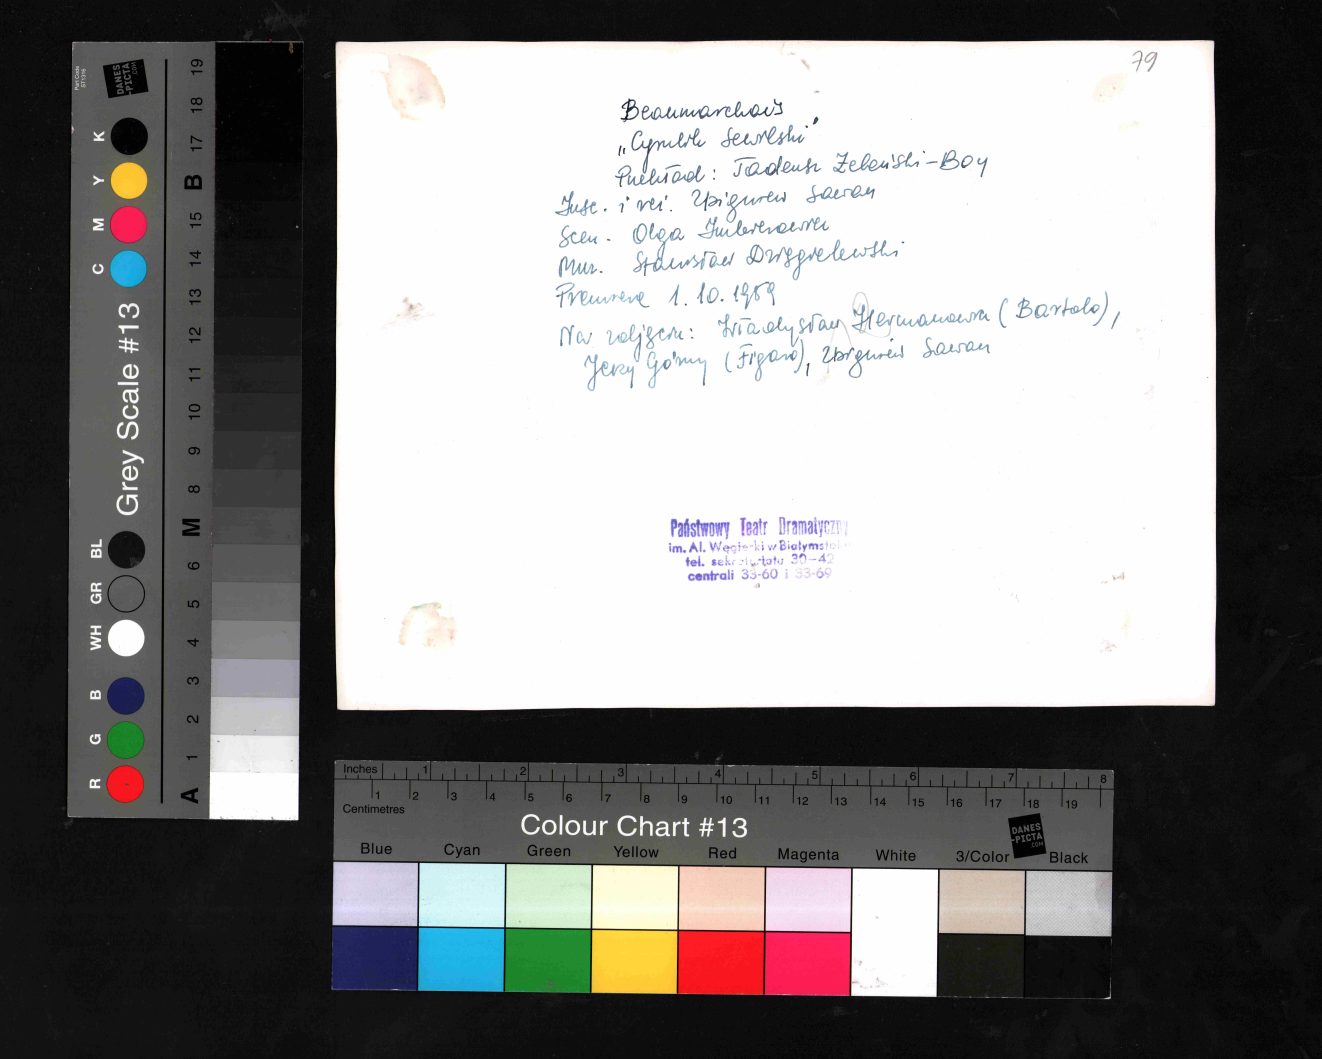 79
Beaumarchais
„Cyrulik Sewilski"
Przekład: Tadeusz Żeleński-Boy
Insc. i reż. Zbigniew Sawan
Scen. Olga
Muz. Stanisław Dzięgielewski
Premiera 1.10.1969
Na zdjęciu: Władysław Hermanowicz (Bartolo),
Jerzy Górny (Figaro), Zbigniew Sawan
Państwowy Teatr Dramatyczny
im. Al. Węgierki w Białymstoku
tel. sekretariatu 30-42
centrali 33-60 i 33-69
Part Code
DANES
-PICTA
.COM
Grey Scale #13
R G B WH GR BL C M Y K
A 1 2 3 4 5 6 M 8 9 10 11 12 13 14 15 B 17 18 19
Inches 1 2 3 4 5 6 7 8
1 2 3 4 5 6 7 8 9 10 11 12 13 14 15 16 17 18 19
Centimetres
Colour Chart #13
DANES
-PICTA
.COM
Blue Cyan Green Yellow Red Magenta White 3/Color Black